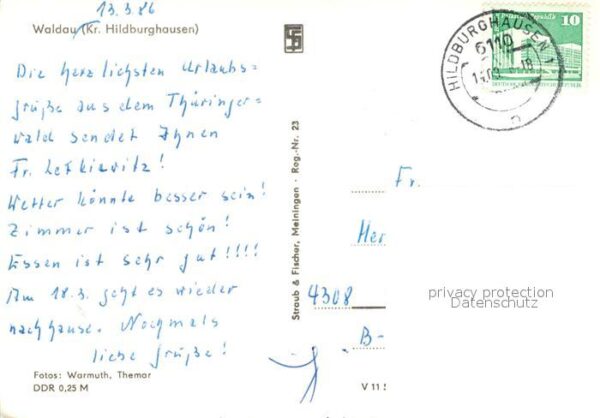 13.3.86
Waldau (Kr. Hildburghausen)
Die herzlichsten Urlaubs=
grüße aus dem Thüringer=
wald sendet Ihnen
Fr.
Wetter könnte besser sein!
Zimmer ist schön!
Essen ist sehr gut!!!!
Am 18.3. geht es wieder
nachhause. Nochmals
liebe Grüße!
Fotos: Warmuth, Themar
DDR 0,25 M
Straub & Fischer, Meiningen · Reg.-Nr. 23
HILDBURGHAUSEN 1
6110
10
Fr.
Her
4308
privacy protection
Datenschutz
B-
V 11